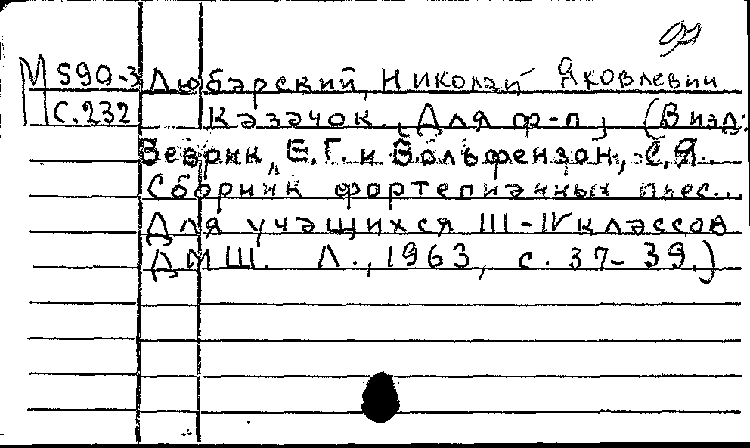 М 590-3 Любарский, Николай Яковлевич
С.232 Казачок. (Для ф-п) (В изд:
Беврик, Е.Г. и Вольфензон, С.Я.
Сборник фортепианных пьес...
Для учащихся III-IV классов
ДМШ. Л., 1963, с. 37-39.)